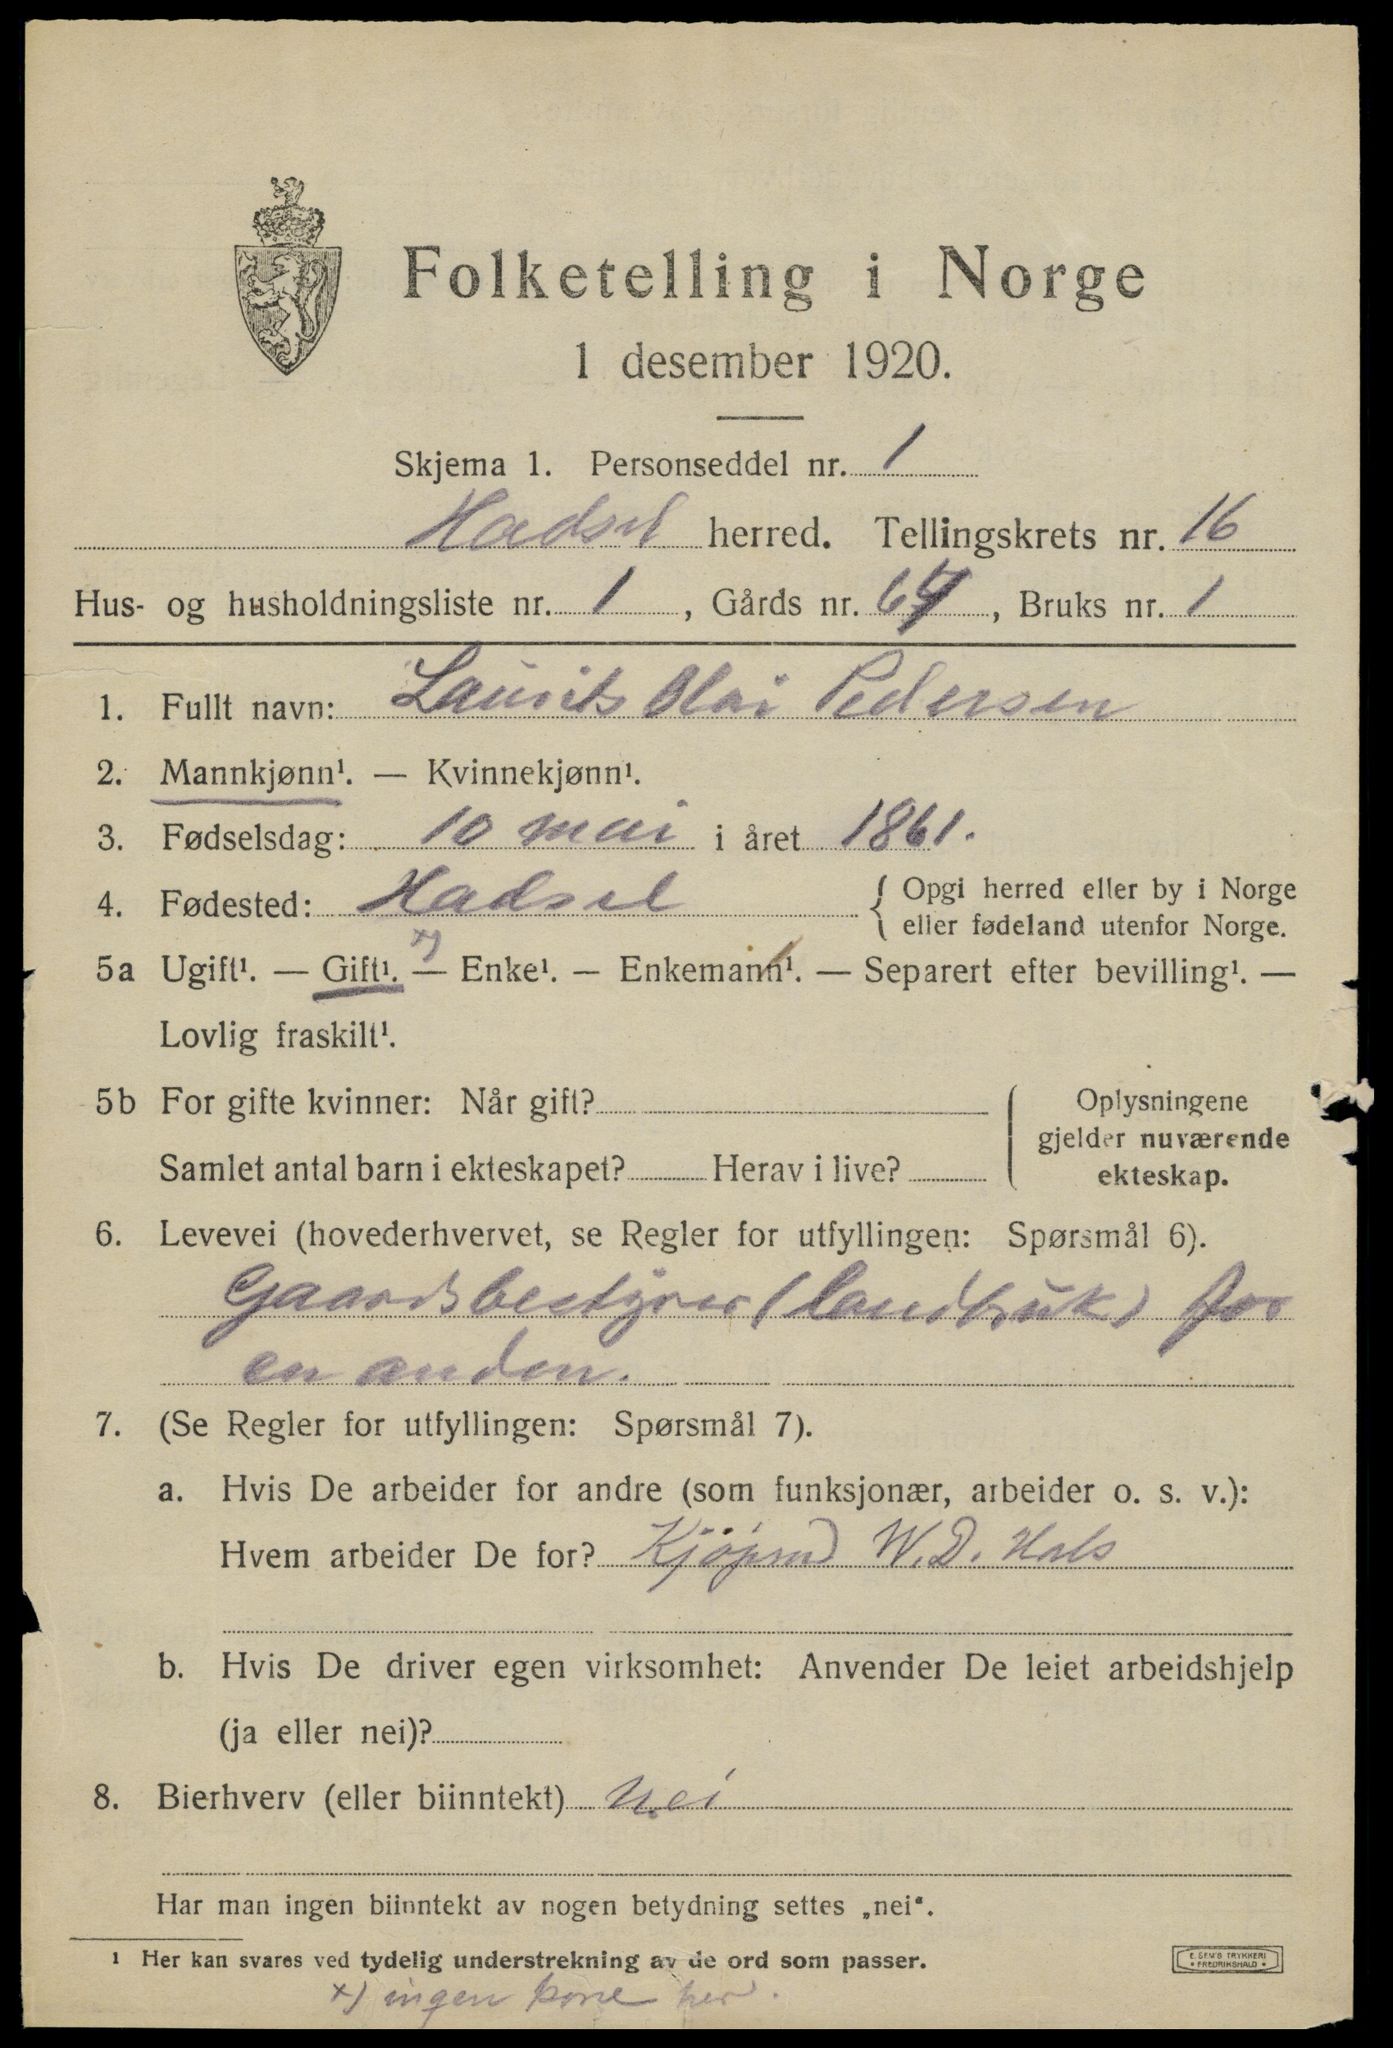 Folketelling i Norge
1 desember 1920.
Skjema 1. Personseddel nr. 1
Hadsel herred. Tellingskrets nr. 16
Hus- og husholdningsliste nr. 1, Gårds nr. 67, Bruks nr. 1
1. Fullt navn: Laurits Olai Pedersen
2. Mannkjønn¹. — Kvinnekjønn¹.
3. Fødselsdag: 10 mai i året 1861.
4. Fødested: Hadsel { Opgi herred eller by i Norge
eller fødeland utenfor Norge.
x)
5a Ugift¹. — Gift¹. — Enke¹. — Enkemann¹. — Separert efter bevilling¹. —
Lovlig fraskilt¹.
5b For gifte kvinner: Når gift?
Samlet antal barn i ekteskapet? Herav i live?
Oplysningene
gjelder nuværende
ekteskap.
6. Levevei (hovederhvervet, se Regler for utfyllingen: Spørsmål 6).
Gaardsbestyrer (landbruk) for
en anden.
7. (Se Regler for utfyllingen: Spørsmål 7).
a. Hvis De arbeider for andre (som funksjonær, arbeider o. s. v.):
Hvem arbeider De for? Kjøpmd W. D. Hals
b. Hvis De driver egen virksomhet: Anvender De leiet arbeidshjelp
(ja eller nei)?
8. Bierhverv (eller biinntekt) nei
Har man ingen biinntekt av nogen betydning settes „nei“.
1 Her kan svares ved tydelig understrekning av de ord som passer.
E. SEM'S TRYKKERI
• FREDRIKSHALD •
x) ingen kone her.